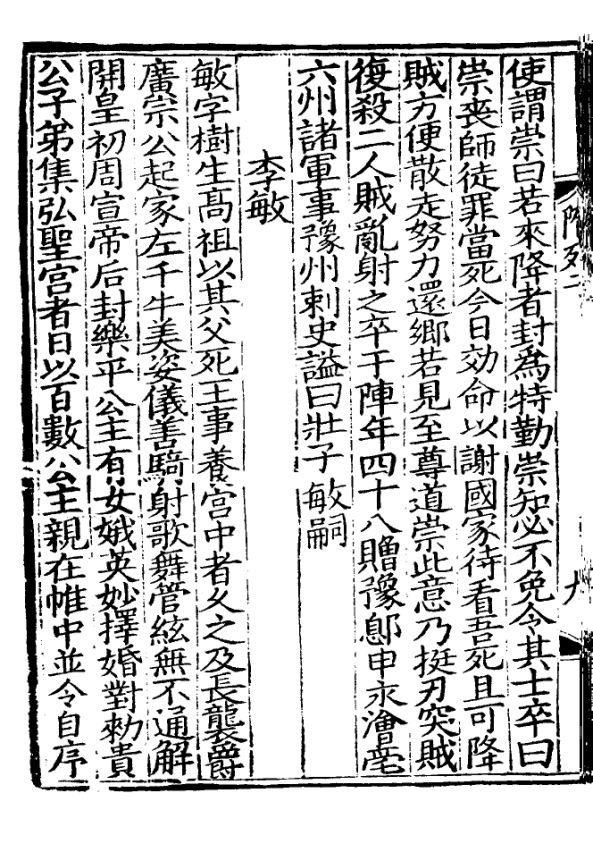 使謂崇曰若來降者封爲特勤崇知必不免令其士卒曰
崇喪師徒罪當死今日効命以謝國家待看吾死且可降
賊方便散走努力還鄉若見至尊道崇此意乃挺刃突賊
復殺二人賊亂射之卒于陣年四十八贈豫鄎申永澮亳
六州諸軍事豫州刺史諡曰壯子敏嗣
李敏
敏字樹生高祖以其父死王事養宮中者久之及長襲爵
廣宗公起家左千牛美姿儀善騎射歌舞管絃無不通解
開皇初周宣帝后封樂平公主有女娥英妙擇婚對勑貴
公子弟集弘聖宮者日以百數公主親在帷中並令自序